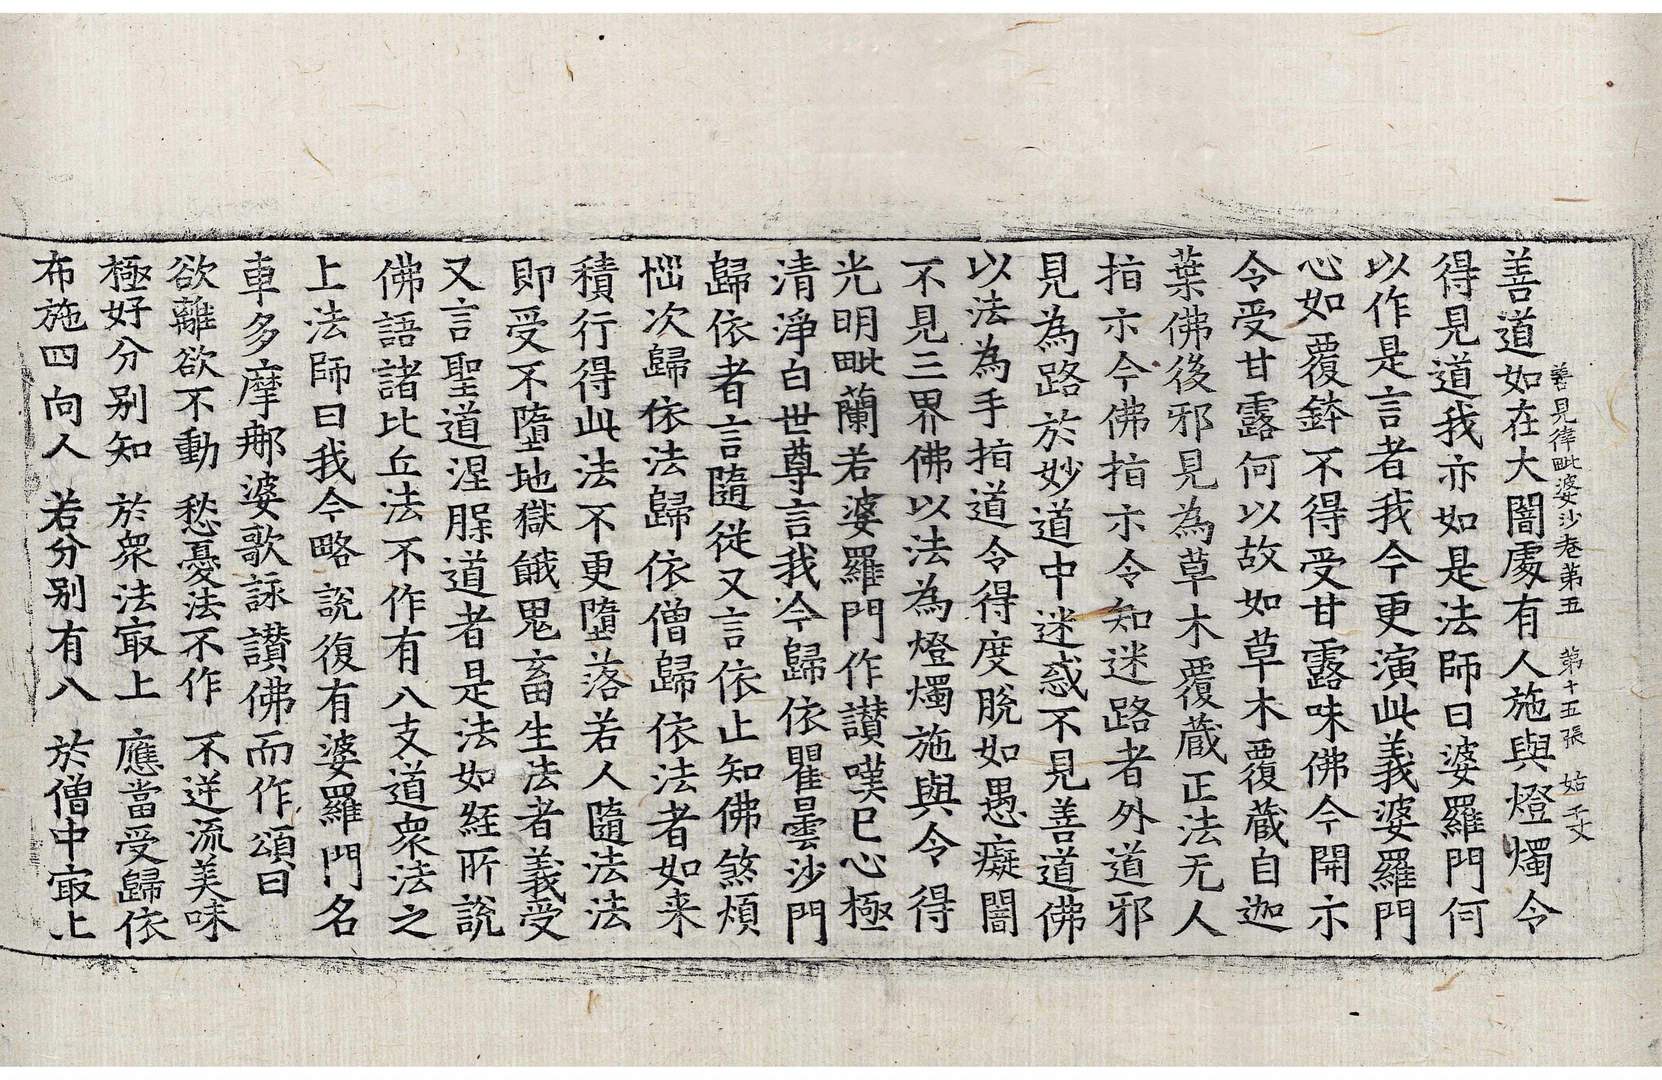 善見律毗婆沙卷第五　第十五張　姑　子文
善道如在大闇處有人施與燈燭令
得見道我亦如是法師曰婆羅門何
以作是言者我今更演此義婆羅門
心如覆鉢不得受甘露味佛今開示
令受甘露何以故如草木覆蔵自迦
葉佛後邪見為草木覆蔵正法无人
指示今佛指示令知迷路者外道邪
見為路於妙道中迷惑不見善道佛
以法為手指道令得度脫如愚癡闇
不見三界佛以法為燈燭施與令得
光明毗蘭若婆羅門作讃嘆已心極
清淨白世尊言我今歸依瞿曇沙門
歸依者言隨從又言依止知佛煞煩
惱次歸依法歸依僧歸依法者如来
積行得此法不更墮落若人隨法法
即受不墮地獄餓鬼畜生法者義受
又言聖道涅脲道者是法如經所說
佛語諸比丘法不作有八支道衆法之
上法師曰我今略說復有婆羅門名
車多摩㖠婆歌詠讃佛而作頌曰
欲離欲不動　愁憂法不作　不逆流美味
極好分别知　於衆法㝡上　應當受歸依
布施四向人　若分别有八　於僧中㝡上